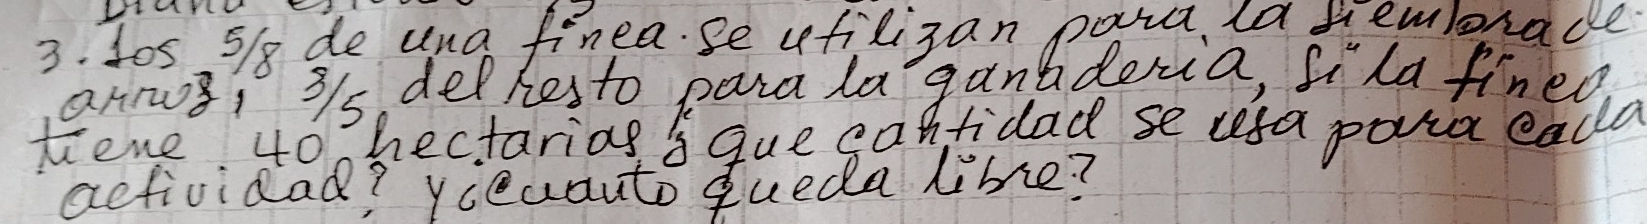 3. Los 5/8 de una finca. se utilizan para la siembra de
arroz, 3/5 del resto para la ganaderia, si la finca
tiene 40 hectarias ¿que cantidad se usa para cada
actividad? y ¿cuanto queda libre?